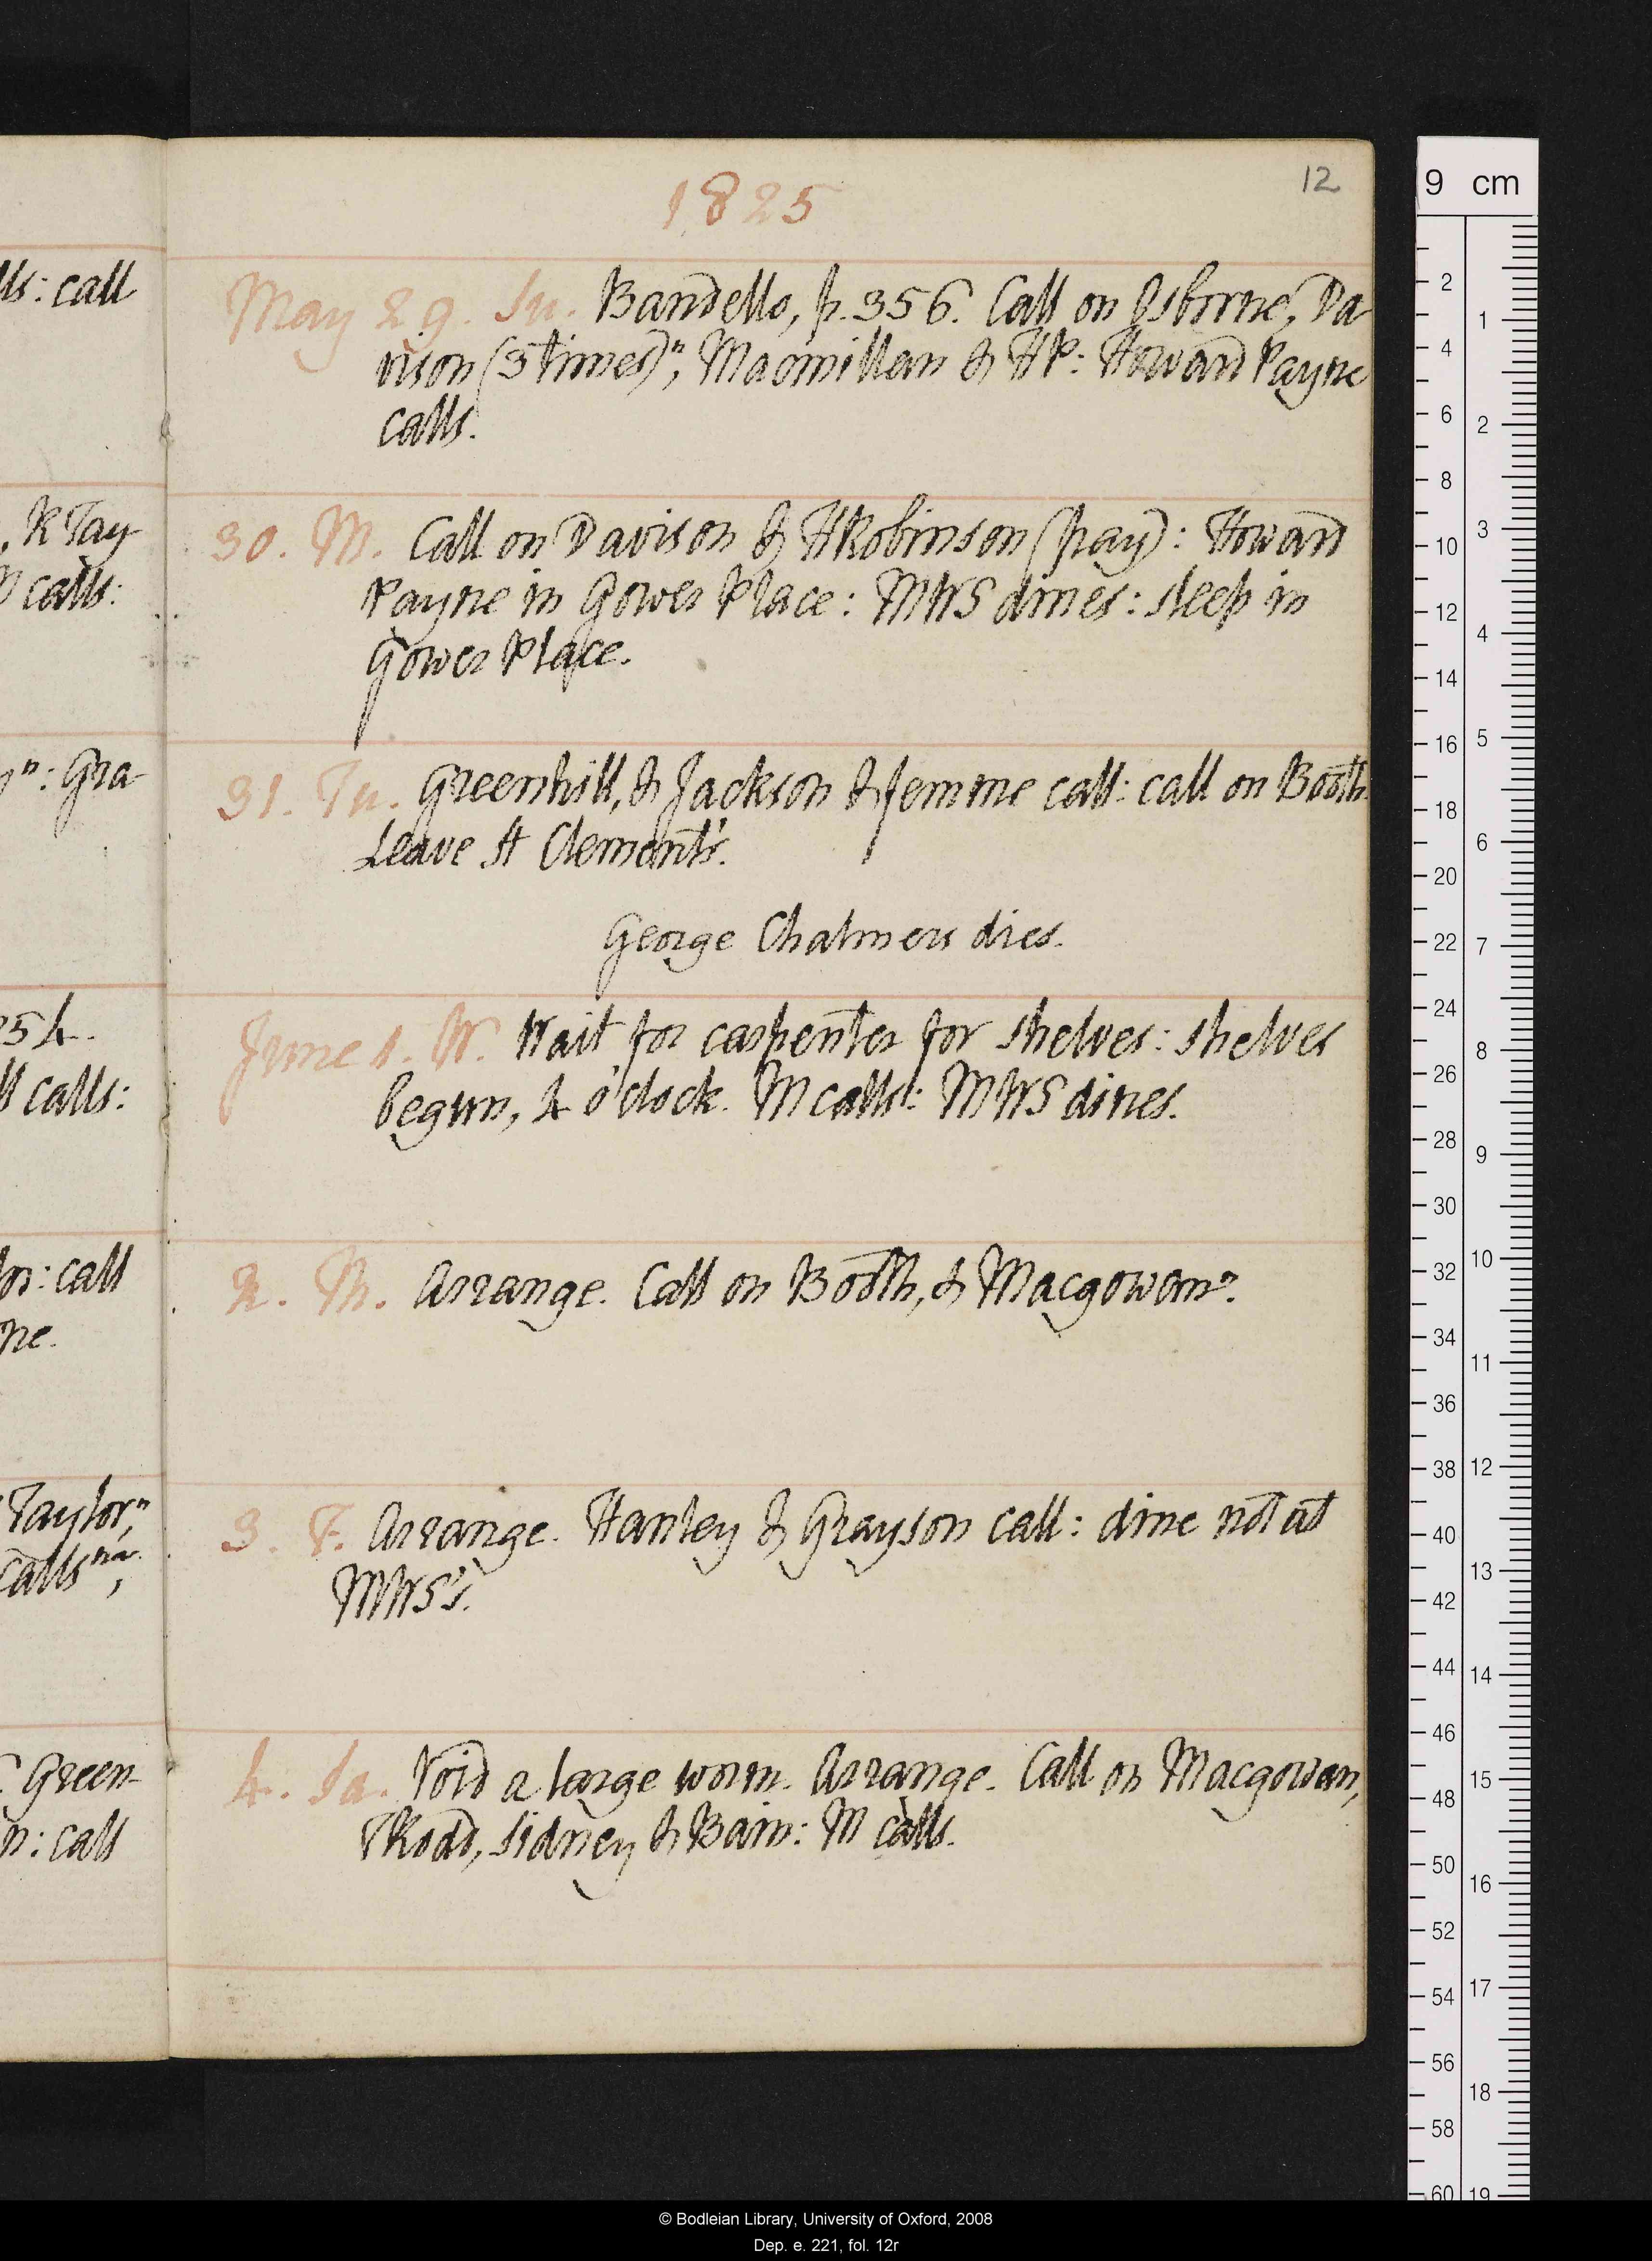 lls: call
, R Tay-
M calls:
yⁿ: Gra-
54.
ll calls:
lor: call
ne.
Taylorⁿ,
callsⁿᵃ,
Green-
n: call
1825
12
May 29. Su. Bandello, p. 356. Call on Osborne, Da-
vison (3 times)ⁿ, Macmillan & HP: Howard Payne
calls.
30. M. Call on Davison & HRobinson (pay): Howard
Payne in Gower Place: MWS dines: sleep in
Gower Place.
31. Tu. Greenhill, & Jackson & femme call: call on Booth.
Leave St Clement's.
George Chalmers dies.
June 1. W. Wait for carpenter for shelves: shelves
begun, 4 o'clock. M calls: MWS dines.
2. Th. Arrange. Call on Booth, & Macgowanⁿ.
3. F. Arrange. Hanley & Grayson call: dine not at
MWS's.
4. Sa. Void a large worm. Arrange. Call on Macgowan,
TRodd, Sidney & Bain: M calls.
9 cm
2
4
6
8
10
12
14
16
18
20
22
24
26
28
30
32
34
36
38
40
42
44
46
48
50
52
54
56
58
60
1
2
3
4
5
6
7
8
9
10
11
12
13
14
15
16
17
18
19
© Bodleian Library, University of Oxford, 2008
Dep. e. 221, fol. 12r